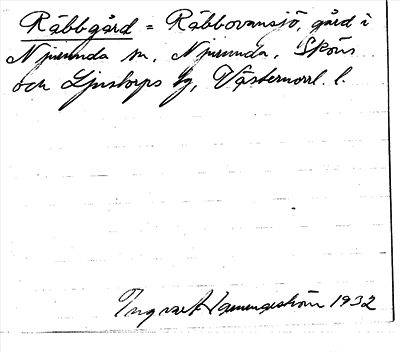 Räbbgård = Räbbovansjö, gård i
Njurunda sn, Njurunda, Sköns
och Ljustorps tg, Västernorrl. l.
Ingvar 1932